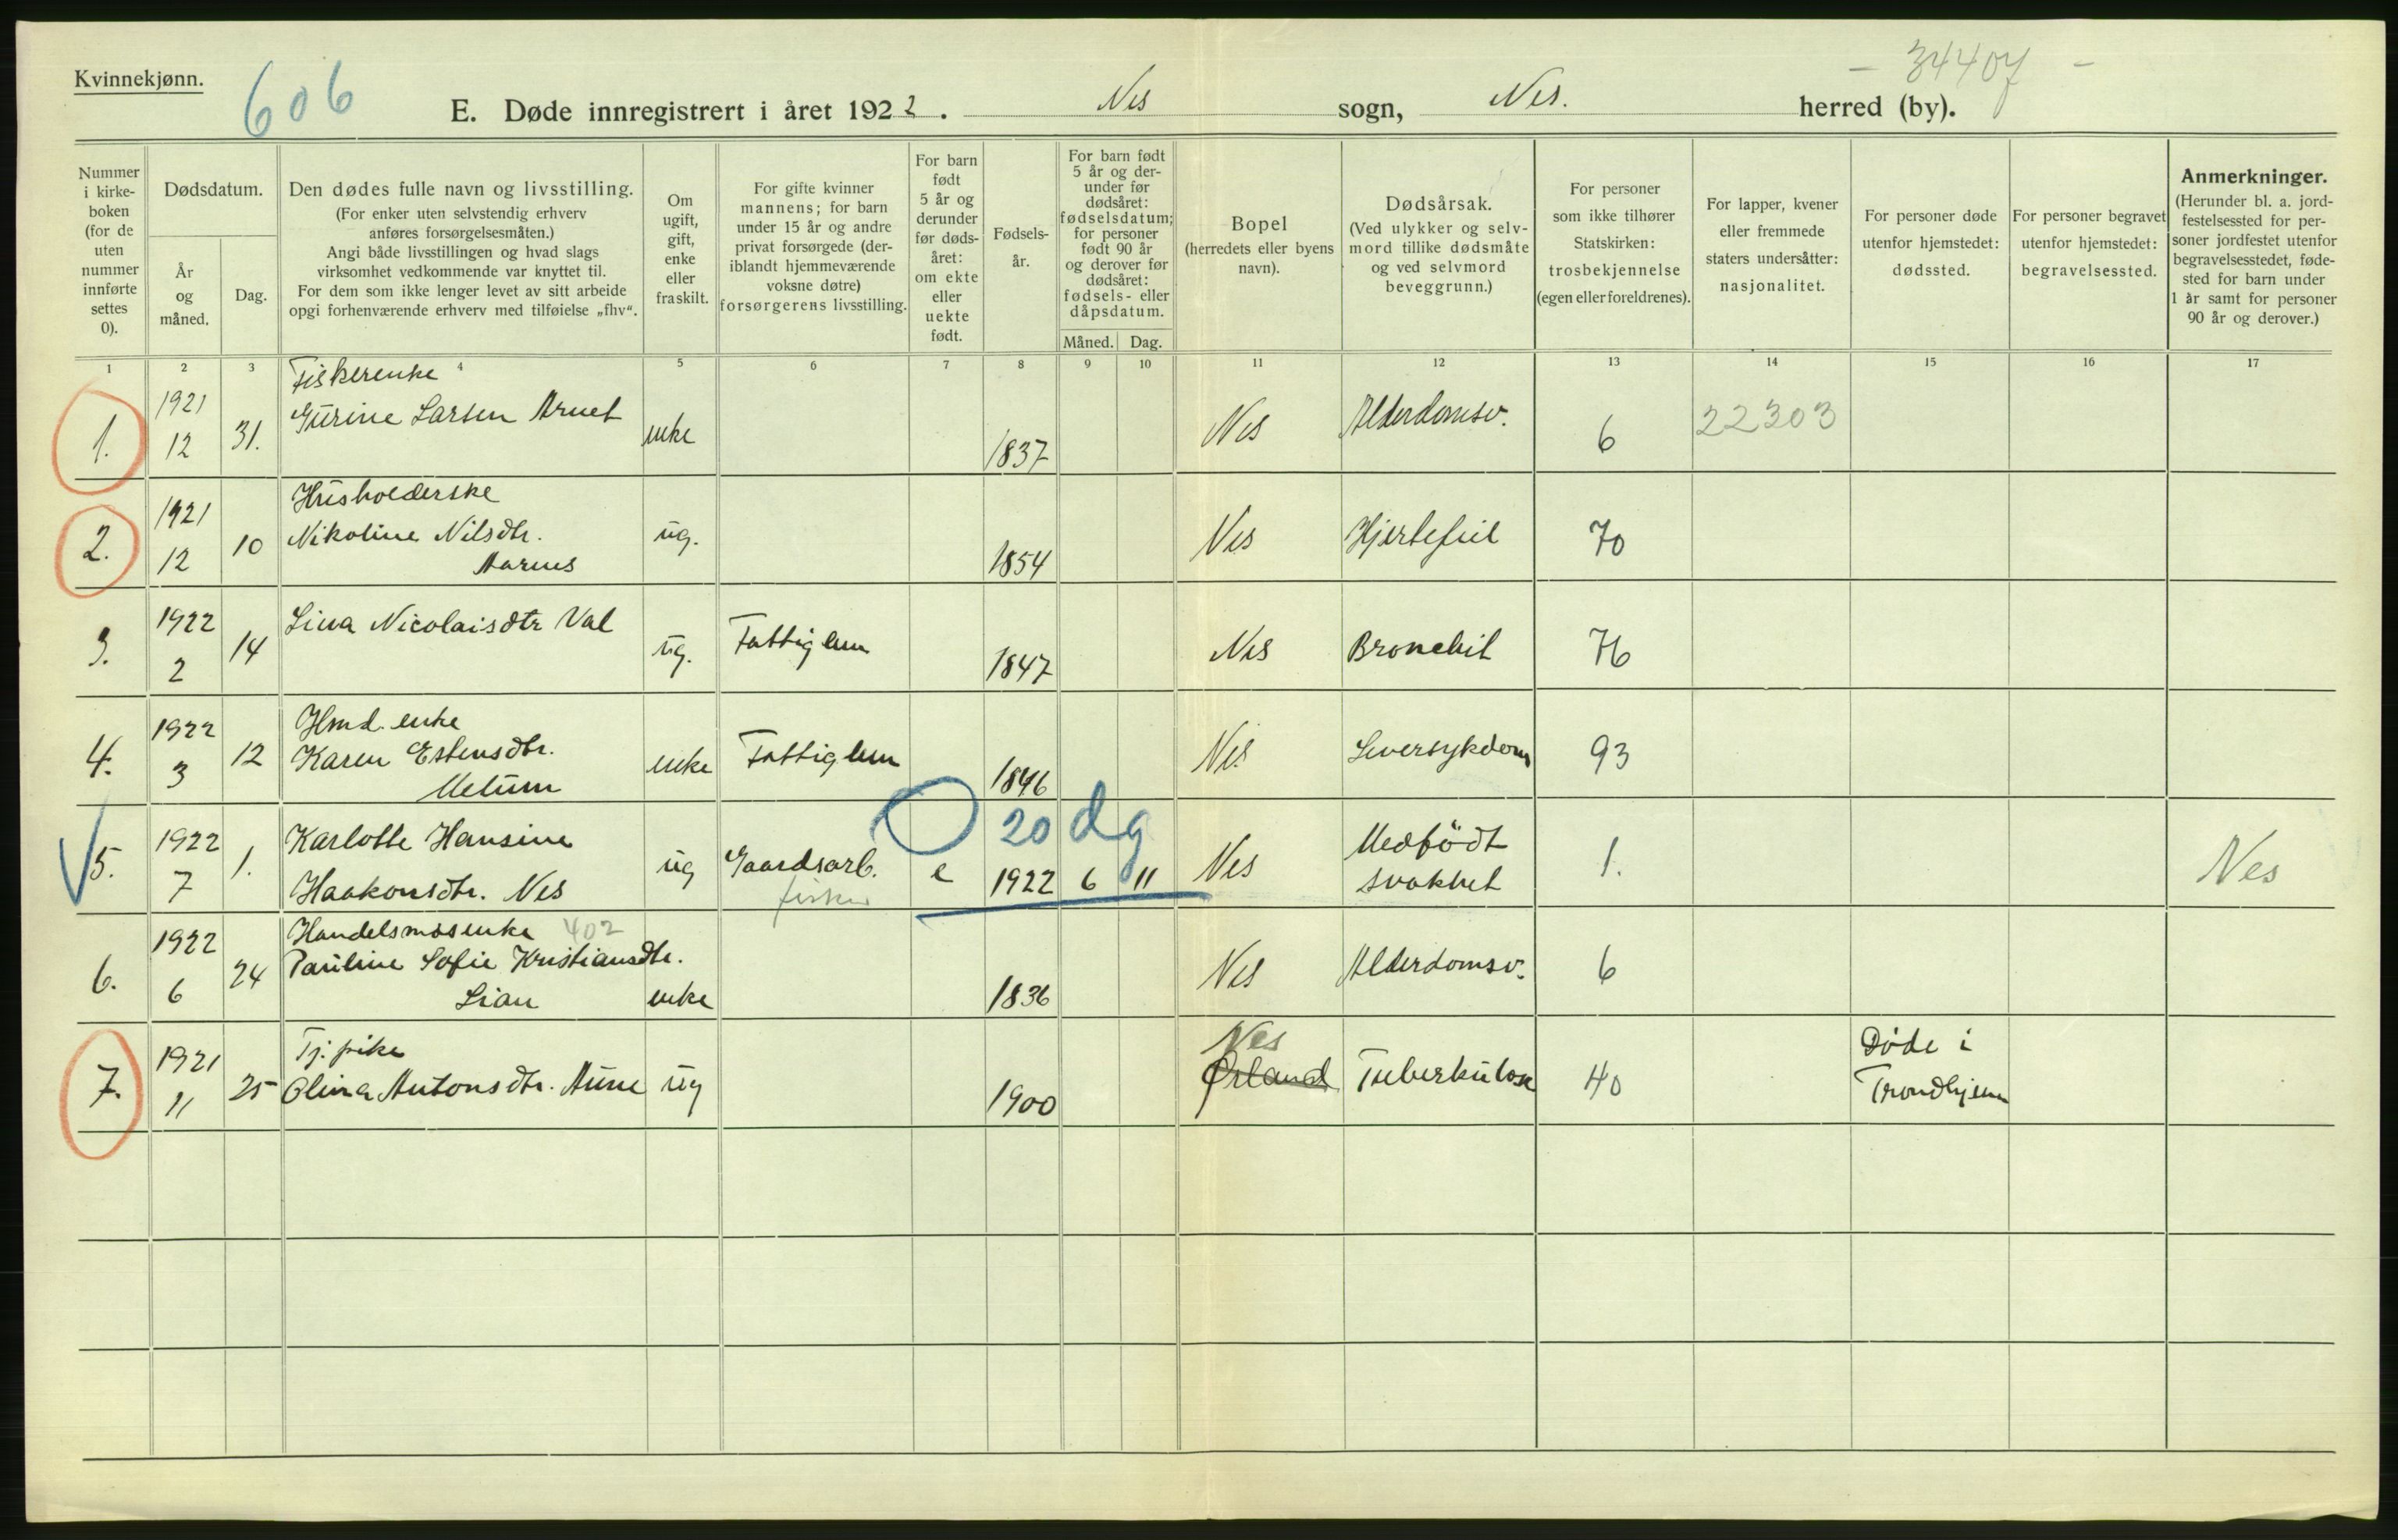 Kvinnekjønn.
606
- 34407 -
E. Døde innregistrert i året 1922. Nes sogn, Nes. herred (by).
Nummer i kirke-boken (for de uten nummer innførte settes 0).
Dødsdatum.
År og måned.
Dag.
Den dødes fulle navn og livsstilling.
(For enker uten selvstendig erhverv
anføres forsørgelsesmåten.)
Angi både livsstillingen og hvad slags
virksomhet vedkommende var knyttet til.
For dem som ikke lenger levet av sitt arbeide
opgi forhenværende erhverv med tilføielse „fhv“.
Om
ugift,
gift,
enke
eller
fraskilt.
For gifte kvinner
mannens; for barn
under 15 år og andre
privat forsørgede (der-
iblandt hjemmeværende
voksne døtre)
forsørgerens livsstilling.
For barn
født
5 år og
derunder
før døds-
året:
om ekte
eller
uekte
født.
Fødsels-
år.
For barn født
5 år og der-
under før
dødsåret:
fødselsdatum;
for personer
født 90 år
og derover før
dødsåret:
fødsels- eller
dåpsdatum.
Måned. Dag.
Bopel
(herredets eller byens
navn).
Dødsårsak.
(Ved ulykker og selv-
mord tillike dødsmåte
og ved selvmord
beveggrunn.)
For personer
som ikke tilhører
Statskirken:
trosbekjennelse
(egen eller foreldrenes).
For lapper, kvener
eller fremmede
staters undersåtter:
nasjonalitet.
For personer døde
utenfor hjemstedet:
dødssted.
For personer begravet
utenfor hjemstedet:
begravelsessted.
Anmerkninger.
(Herunder bl. a. jord-
festelsessted for per-
soner jordfestet utenfor
begravelsesstedet, føde-
sted for barn under
1 år samt for personer
90 år og derover.)
1 2 3 4 5 6 7 8 9 10 11 12 13 14 15 16 17
1. 1921 12 31. Fiskerenke
Gurine Larsen Arnet enke 1837 Nes Alderdomsv. 6 22303
2. 1921 12 10 Husholderske
Nikoline Nilsdtr.
Aarnes ug. 1854 Nes Hjertefeil 70
3. 1922 2 14 Lina Nicolaisdtr Val ug. Fattiglem 1847 Nes Bronchit 76
4. 1922 3 12 Hmd. enke
Karen Estensdtr.
Melum enke Fattiglem 1846 Nes Leversykdom 93
5. 1922 7 1. Karlotte Hansine
Haakonsdtr. Nes ug Gaardsarb.
fisker e 20 dg
1922 6 11 Nes Medfödt
svakhet 1. Nes
6. 1922 6 24 Handelsmands enke 402
Pauline Sofie Kristiansdtr.
Lian enke 1836 Nes Alderdomsv. 6
7. 1921 11 25 Tj. pike
Olina Antonsdtr. Aune ug 1900 Nes
Ørland Tuberkulose 40 Døde i
Trondhjem